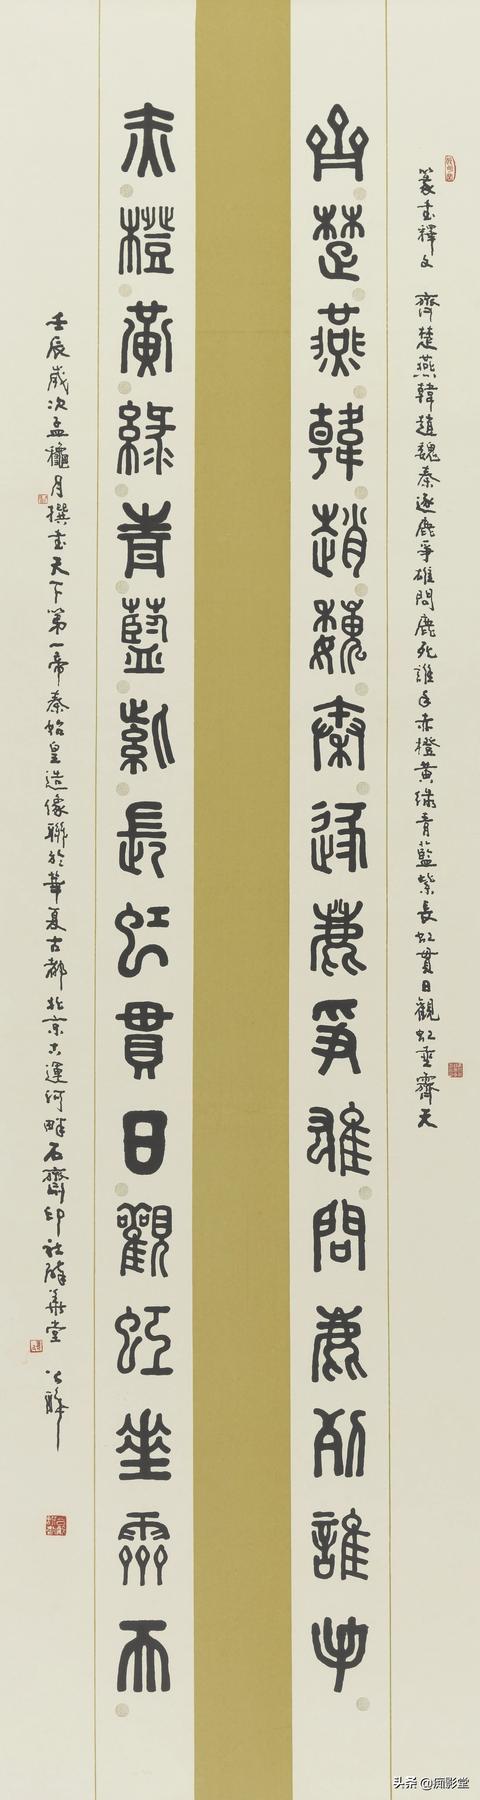 篆書釋文 齊楚燕韓趙魏秦逐鹿爭雄問鹿死誰手赤橙黃綠青藍紫長虹貫日觀虹垂齊天
齊楚燕韓趙魏秦逐鹿爭雄問鹿死誰手
赤橙黃綠青藍紫長虹貫日觀虹垂齊天
壬辰歲次孟穐月撰書天下第一帝秦始皇造像聯於華夏古都北京古運河畔石齋印社
头条 @痴影堂